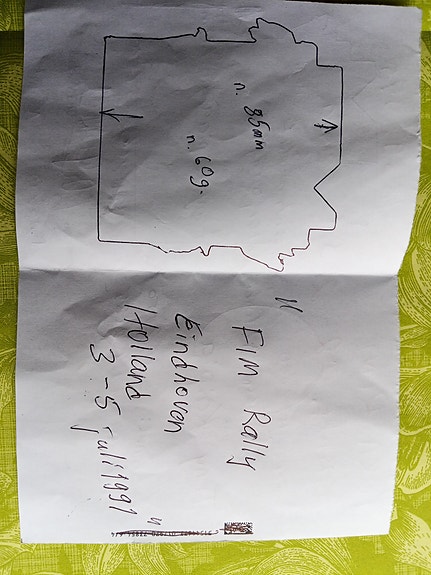 n. 85mm
n. 60g.
" FIM Rally
Eindhoven
Holland
3-5 juli 1991 "